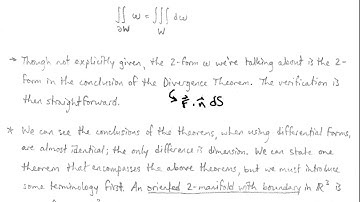 ∬_∂W ω = ∭_W dω
→ Though not explicitly given, the 2-form ω we're talking about is the 2-
form in the conclusion of the Divergence Theorem. The verification is
then straightforward. ↳ F⃗ · n⃗ dS
* We can see the conclusions of the theorems, when using differential forms,
are almost identical; the only difference is dimension. We can state one
theorem that encompasses the above theorems, but we must introduce
some terminology first. An oriented 2-manifold with boundary in ℝ³ is